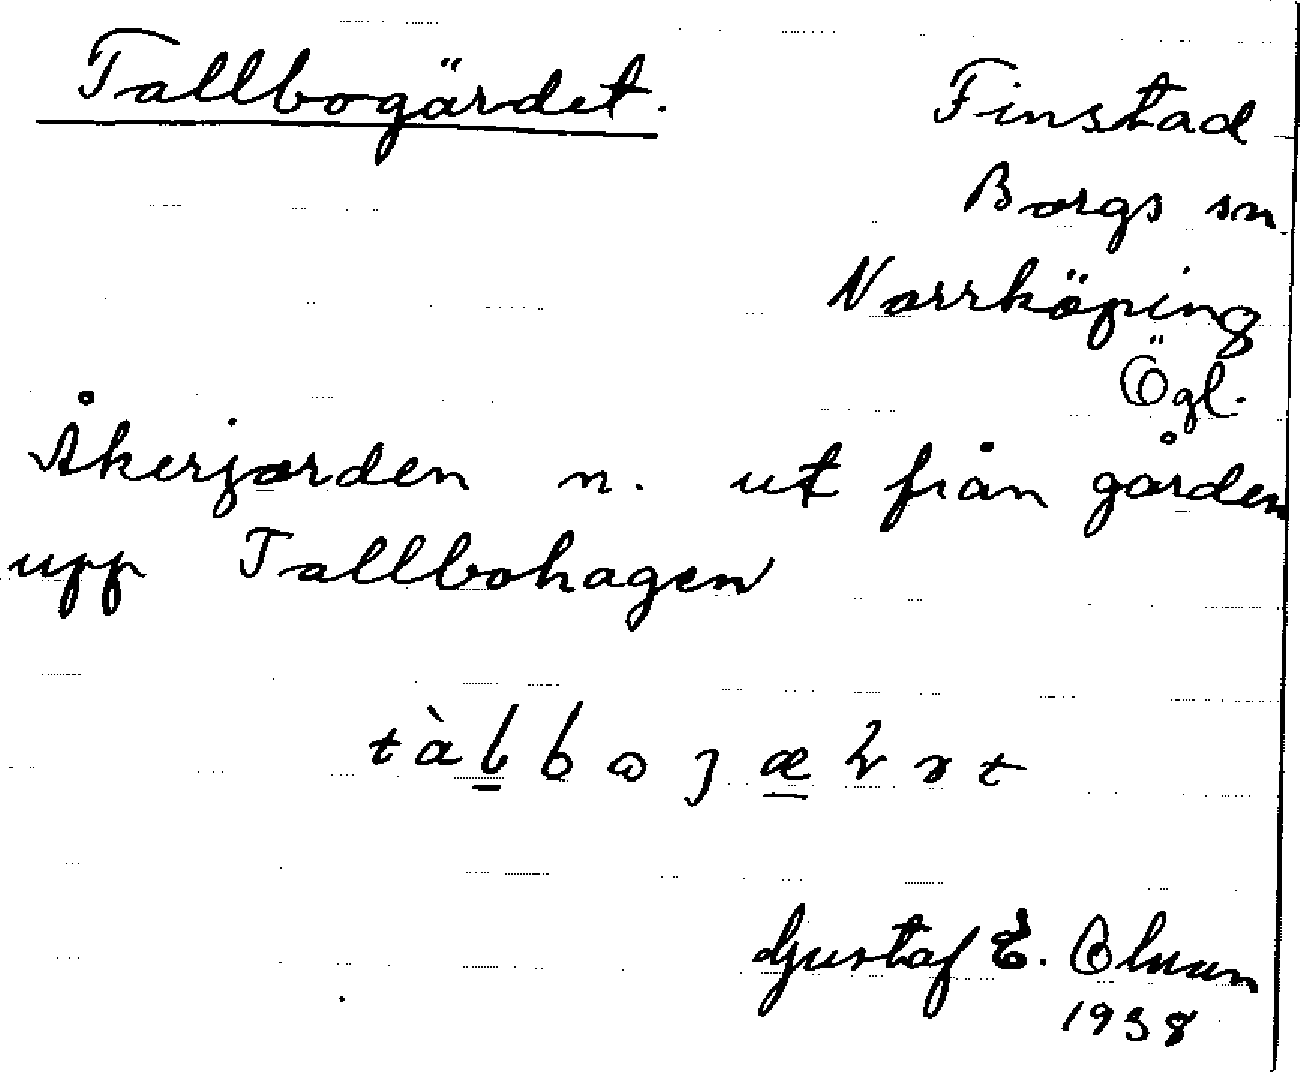 Tallbogärdet.
Finstad
Borgs sn
Norrköping
Ögl.
Åkerjorden n. ut från gården
upp Tallbohagen
Gustaf E. Olsson
1938